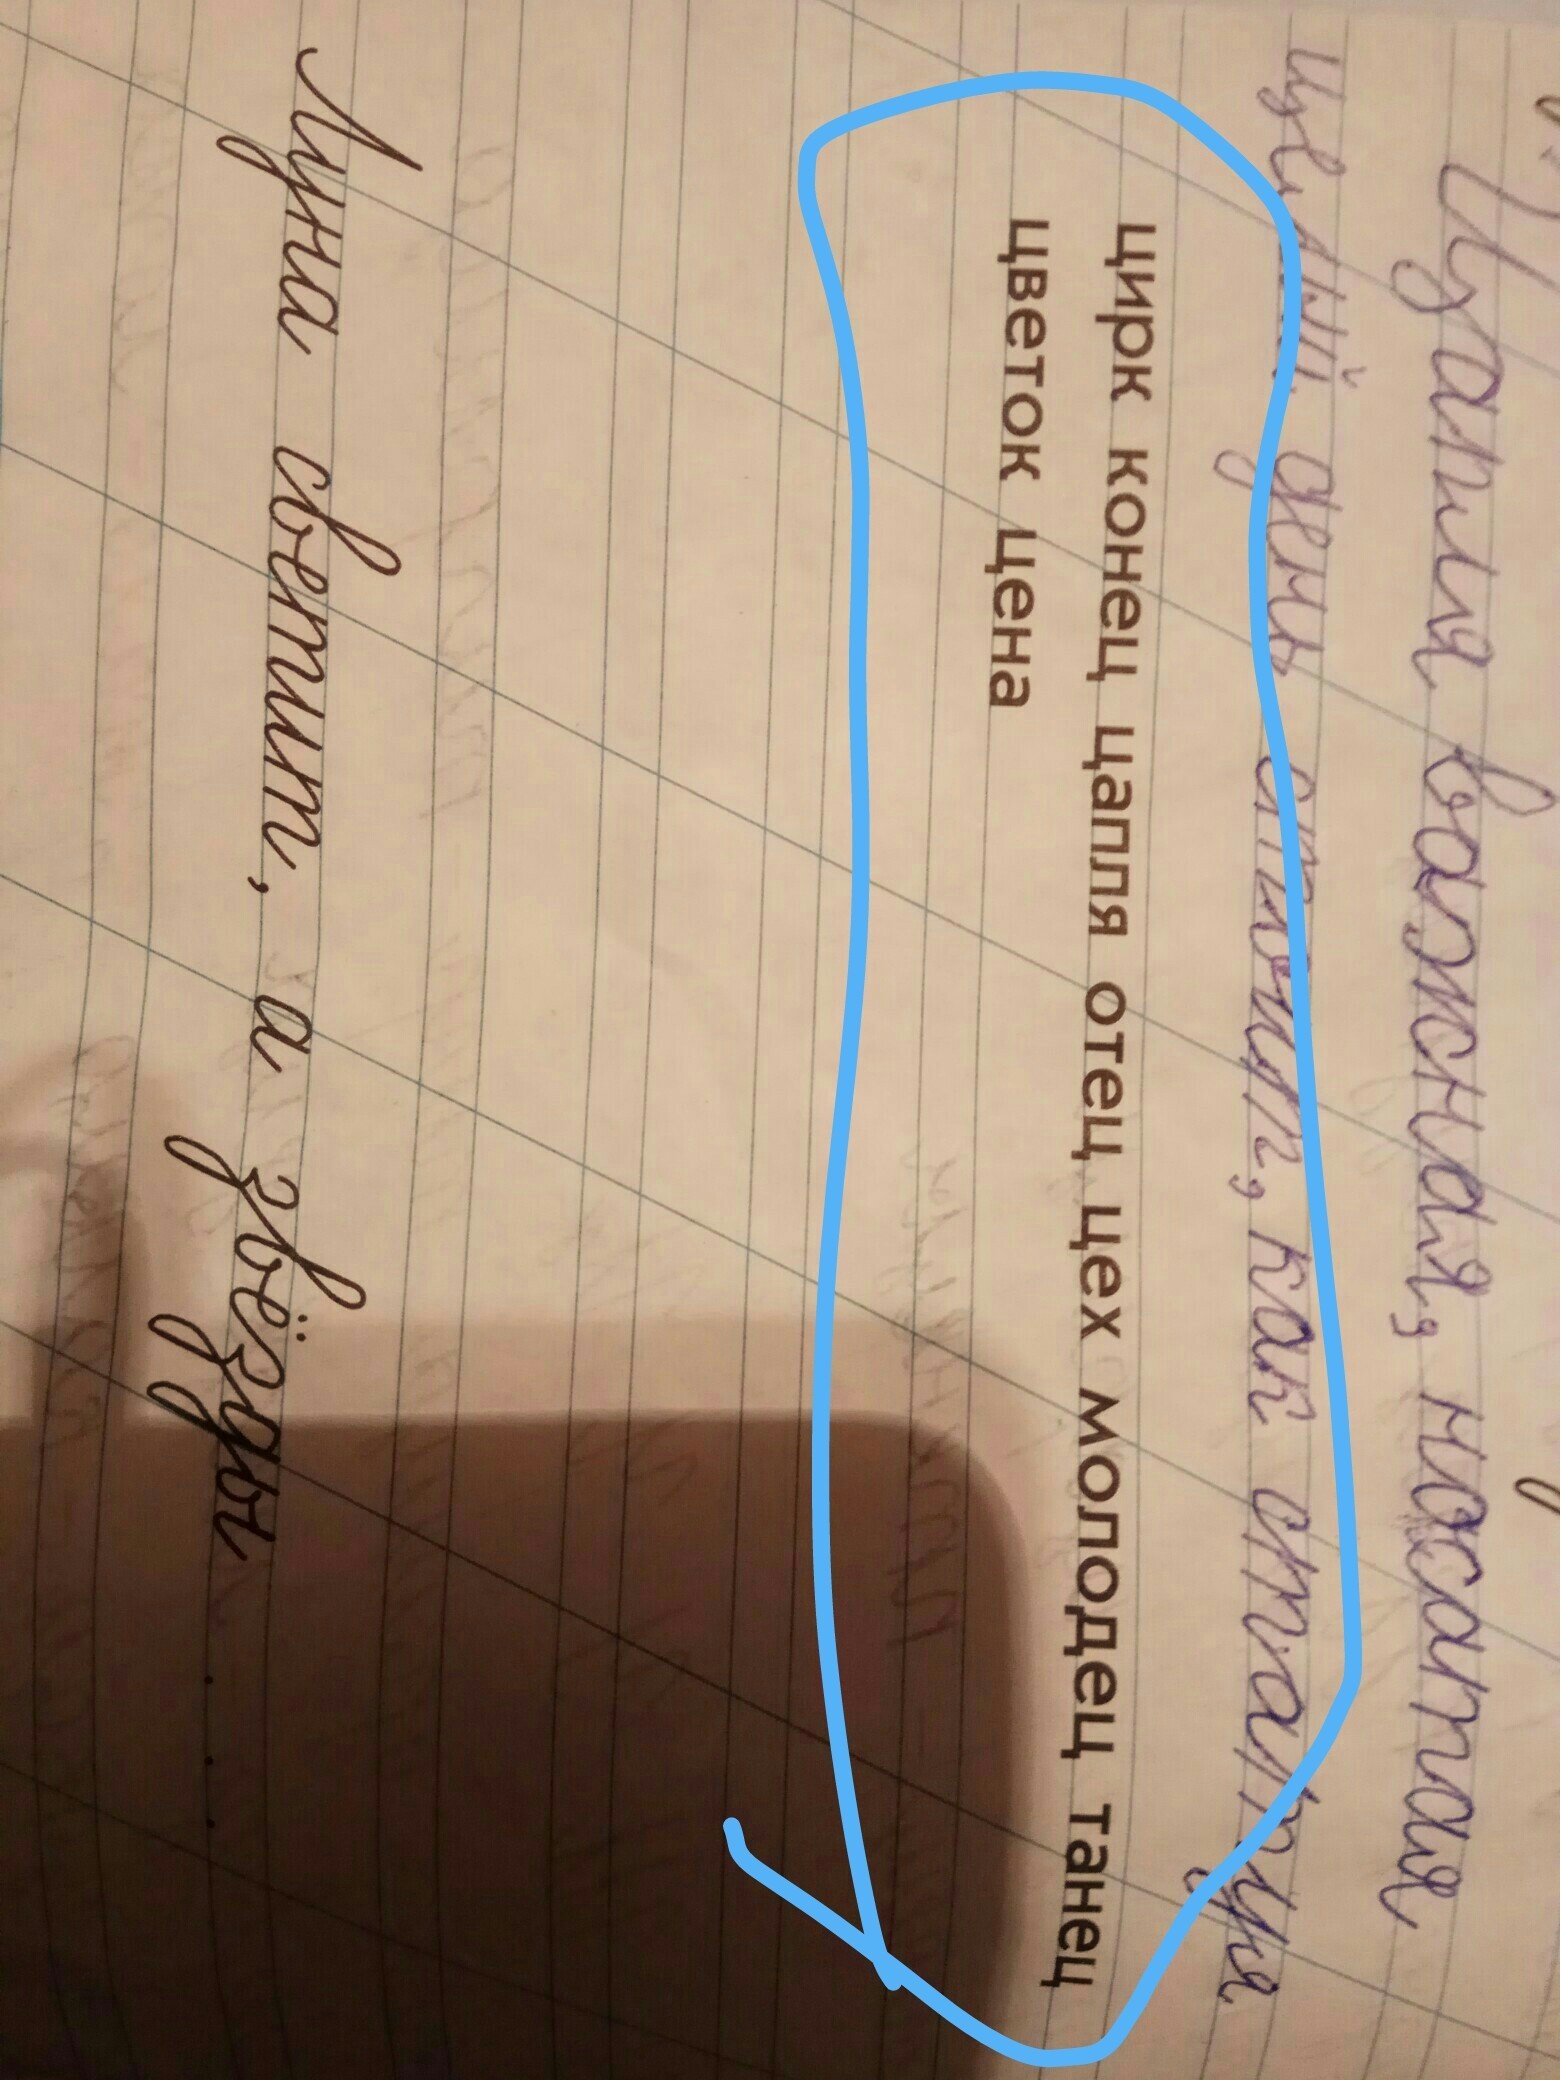 Цапля важная, носатая
Целый день стоит, как статуя
цирк конец цапля отец цех молодец танец
цветок цена
Луна светит, а звёзды ....